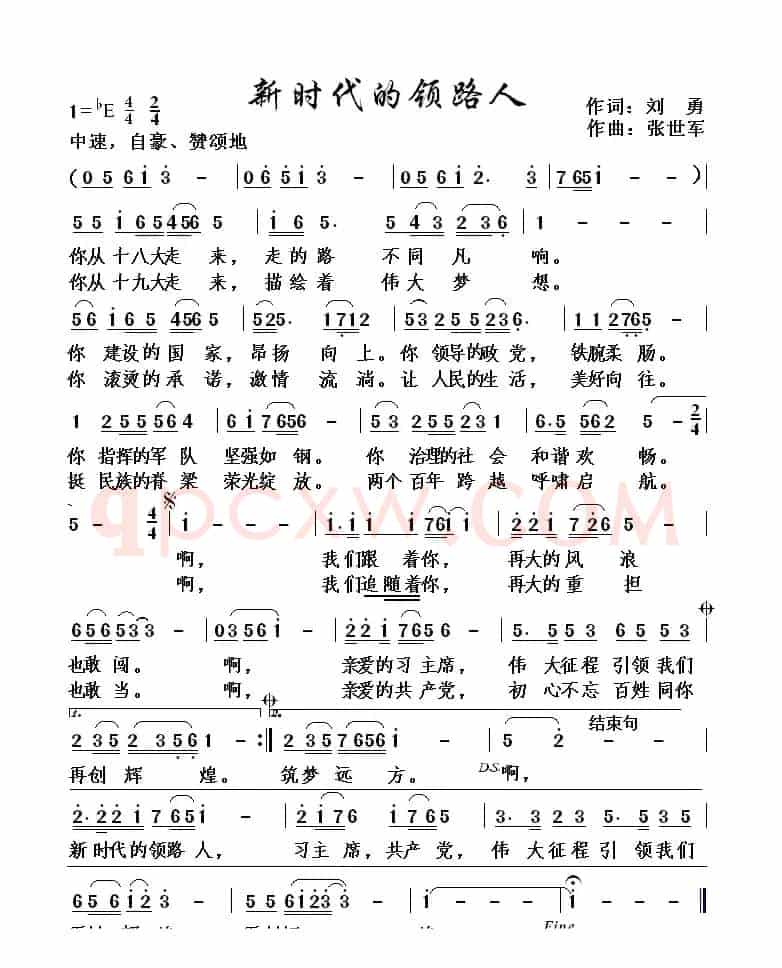 新时代的领路人
1=♭E 4/4 2/4
作词：刘 勇
作曲：张世军
中速，自豪、赞颂地
(0 5 6 1 3 - | 0 6 5 1 3 - | 0 5 6 1 2. 3 | 7 6 5 1 - )
5 5 1 6 5 4 5 6 5 | 1 6 5. 5 4 3 2 3 6 | 1 - - -
你从十八大走 来， 走的路 不同凡 响。
你从十九大走 来， 描绘着 伟大梦 想。
5 6 1 6 5 4 5 6 5 | 5 2 5. 1 7 1 2 | 5 3 2 5 5 2 3 6. | 1 1 2 7 6 5 -
你 建设的国 家， 昂扬 向 上。你 领导的政党， 铁腕柔 肠。
你 滚烫的承 诺， 激情 流 淌。让 人民的生活， 美好向 往。
1 2 5 5 5 6 4 | 6 1 7 6 5 6 - | 5 3 2 5 5 2 3 1 | 6. 5 5 6 2 5 - 2/4
你 指挥的军 队 坚强如 钢。 你 治理的社会 和谐欢 畅。
挺 民族的脊 梁 荣光绽 放。 两个百年跨 越 呼啸启 航。
qpcxw.COM
5 - 4/4 1 - - - | 1. 1 1 1 7 6 1 1 | 2 2 1 7 2 6 5 -
啊， 我们跟 着你， 再大的风 浪
啊， 我们追随着你， 再大的重 担
6 5 6 5 3 3 - | 0 3 5 6 1 - | 2 2 1 7 6 5 6 - | 5. 5 3 5 6 5 5 3
也敢闯。 啊， 亲爱的习主席， 伟 大征程引领我们
也敢当。 啊， 亲爱的共产党， 初 心不忘百姓同你
1. 2. 结束句
2 3 5 2 3 5 6 1 - :|| 2 3 5 7 6 5 6 1 - | 5 2 - -
再创 辉 煌。 筑梦 远 方。 D.S.啊，
2. 2 2 1 7 6 5 1 - | 2 1 7 6 1 7 6 5 | 3. 3 2 3 5. 5 3 5
新时代的领路人， 习主 席，共产 党， 伟 大征程引 领我们
6 5 6 1 2 - | 5 5 6 1 2 3 3 - | 1 - - - | 1 - - -
Fine